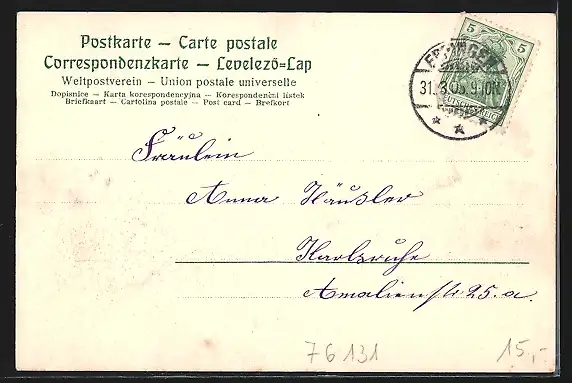 Postkarte – Carte postale
Correspondenzkarte – Levelező=Lap
Weltpostverein – Union postale universelle
Dopisnice – Karta korespondencyjna – Korespondenční lístek
Briefkaart – Cartolina postale – Post card – Brefkort
5 5
31.3.05.9.10N
DEUTSCHES REICH
Fräulein
Anna Häußler
Karlsruhe
Amalienstr 25.a.
76131
15,-